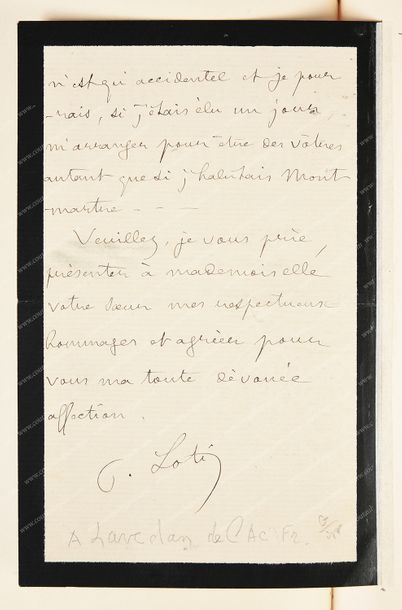 n'est qu'accidentel et je pour
-rais, si j'étais élu un jour,
m'arranger pour être des vôtres
autant que si j'habitais Mont-
martre - - -
Veuillez, je vous prie,
présenter à mademoiselle
votre sœur mes respectueux
hommages et agréer pour
vous ma toute dévouée
affection.
P. Loti
A Lavedan de l'Ac. Fr.